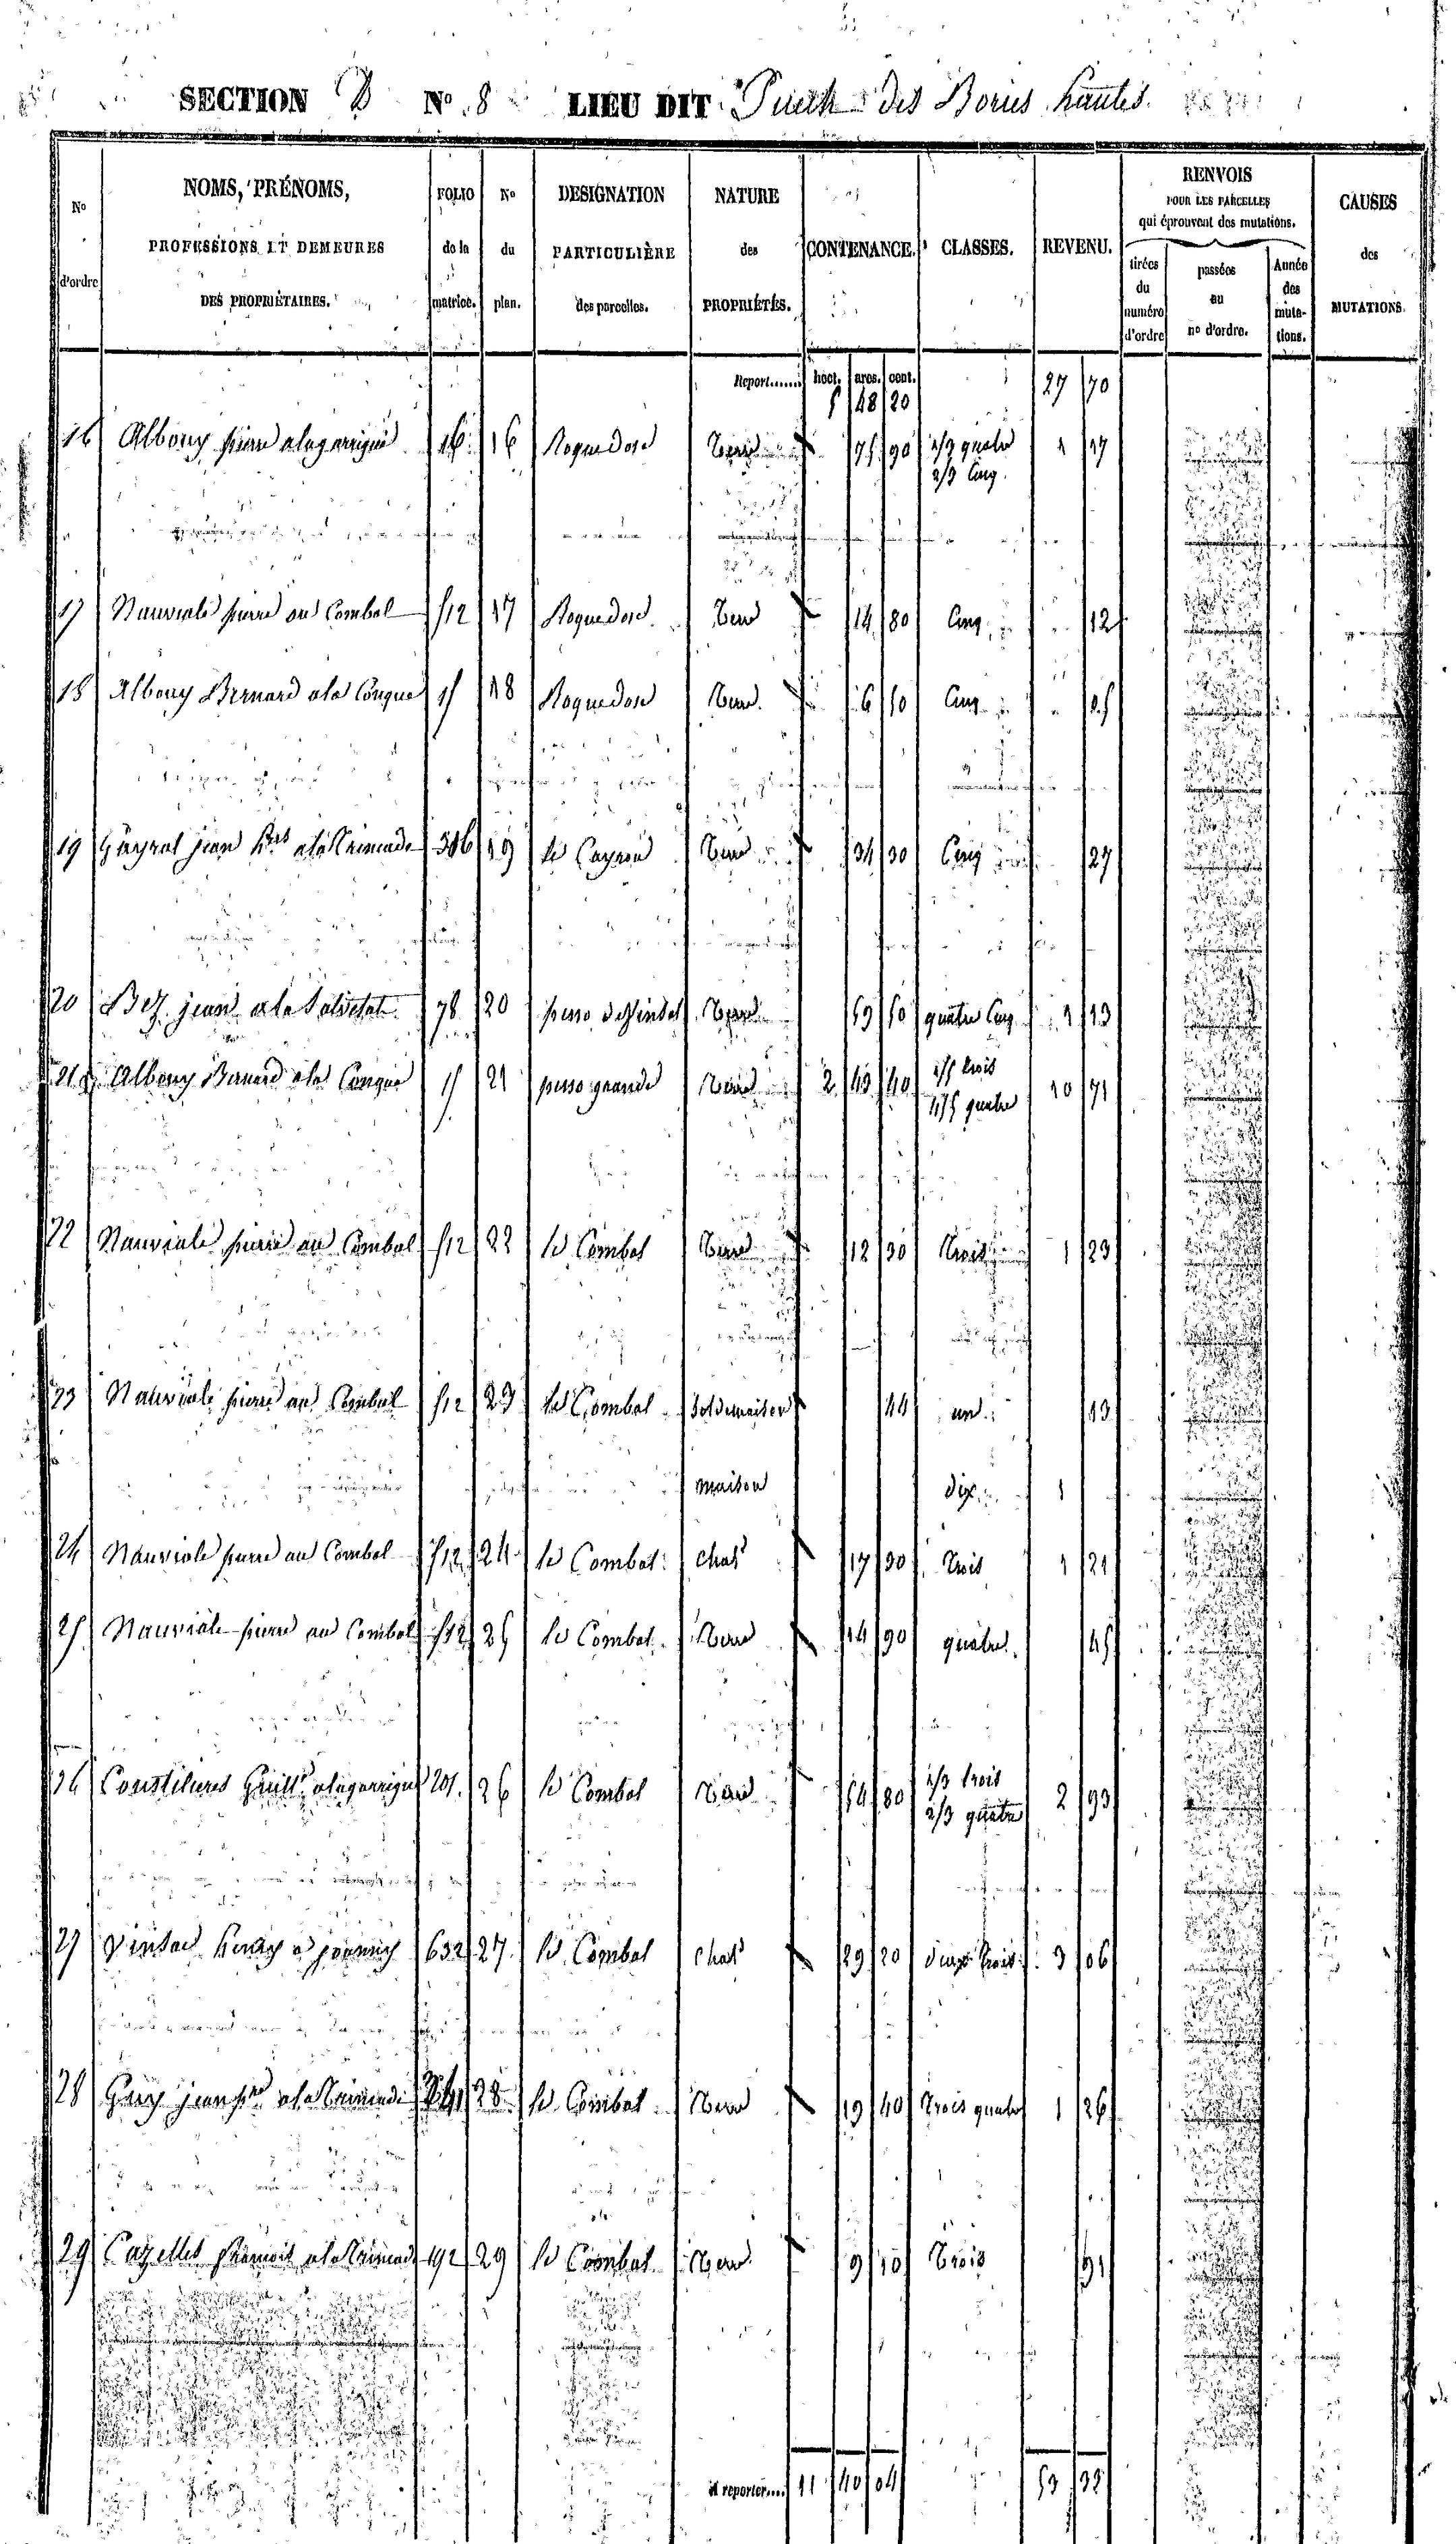 SECTION D No 8 LIEU DIT Puech des Bories hautes
No d'ordre
NOMS, PRÉNOMS, PROFESSIONS ET DEMEURES DES PROPRIÉTAIRES.
FOLIO de la matrice.
No du plan.
DESIGNATION PARTICULIÈRE des parcelles.
NATURE des PROPRIÉTÉS.
CONTENANCE.
CLASSES.
REVENU.
RENVOIS POUR LES PARCELLES qui éprouvent des mutations.
tirées du numéro d'ordre
passées au no d'ordre.
Année des mutations.
CAUSES des MUTATIONS.
Report...... hect. ares. cent.
5 48 20 27 70
16 Albouy pierre a lagarrigue 16 16 Roquedose Terre 75 90 1/3 quatre 1 17
2/3 Cinq
17 Nauviale pierre au Combal 512 17 Roquedose Terre 14 80 Cinq 12
18 Albouy Bernard a la Conque 15 18 Roquedose Terre 6 50 Cinq 05
19 Gayral jean a la 316 19 le Cayrou Terre 34 30 Cinq 27
20 Bez jean a la 78 20 Terre 59 50 quatre Cinq 1 13
21 Albouy Bernard a la Conque 15 21 grande Terre 2 43 40 1/5 trois 10 71
4/5 quatre
22 Nauviale pierre au Combal 512 22 le Combal Terre 12 30 Trois 1 23
23 Nauviale pierre au Combal 512 23 le Combal Sol de maison 44 un 13
maison dix 1
24 Nauviale pierre au Combal 512 24 le Combal chat 17 30 Trois 1 21
25 Nauviale pierre au Combal 512 25 le Combal Terre 14 90 quatre 45
26 a lagarrigue 201 26 le Combal Terre 54 80 1/3 trois 2 93
2/3 quatre
27 632 27 le Combal chat 29 20 deux trois 3 06
28 jean a la 28 le Combal Terre 19 40 Trois quatre 1 26
29 Cazelles a la 192 29 le Combal Terre 9 10 Trois 91
A reporter.... 11 40 04 53 33